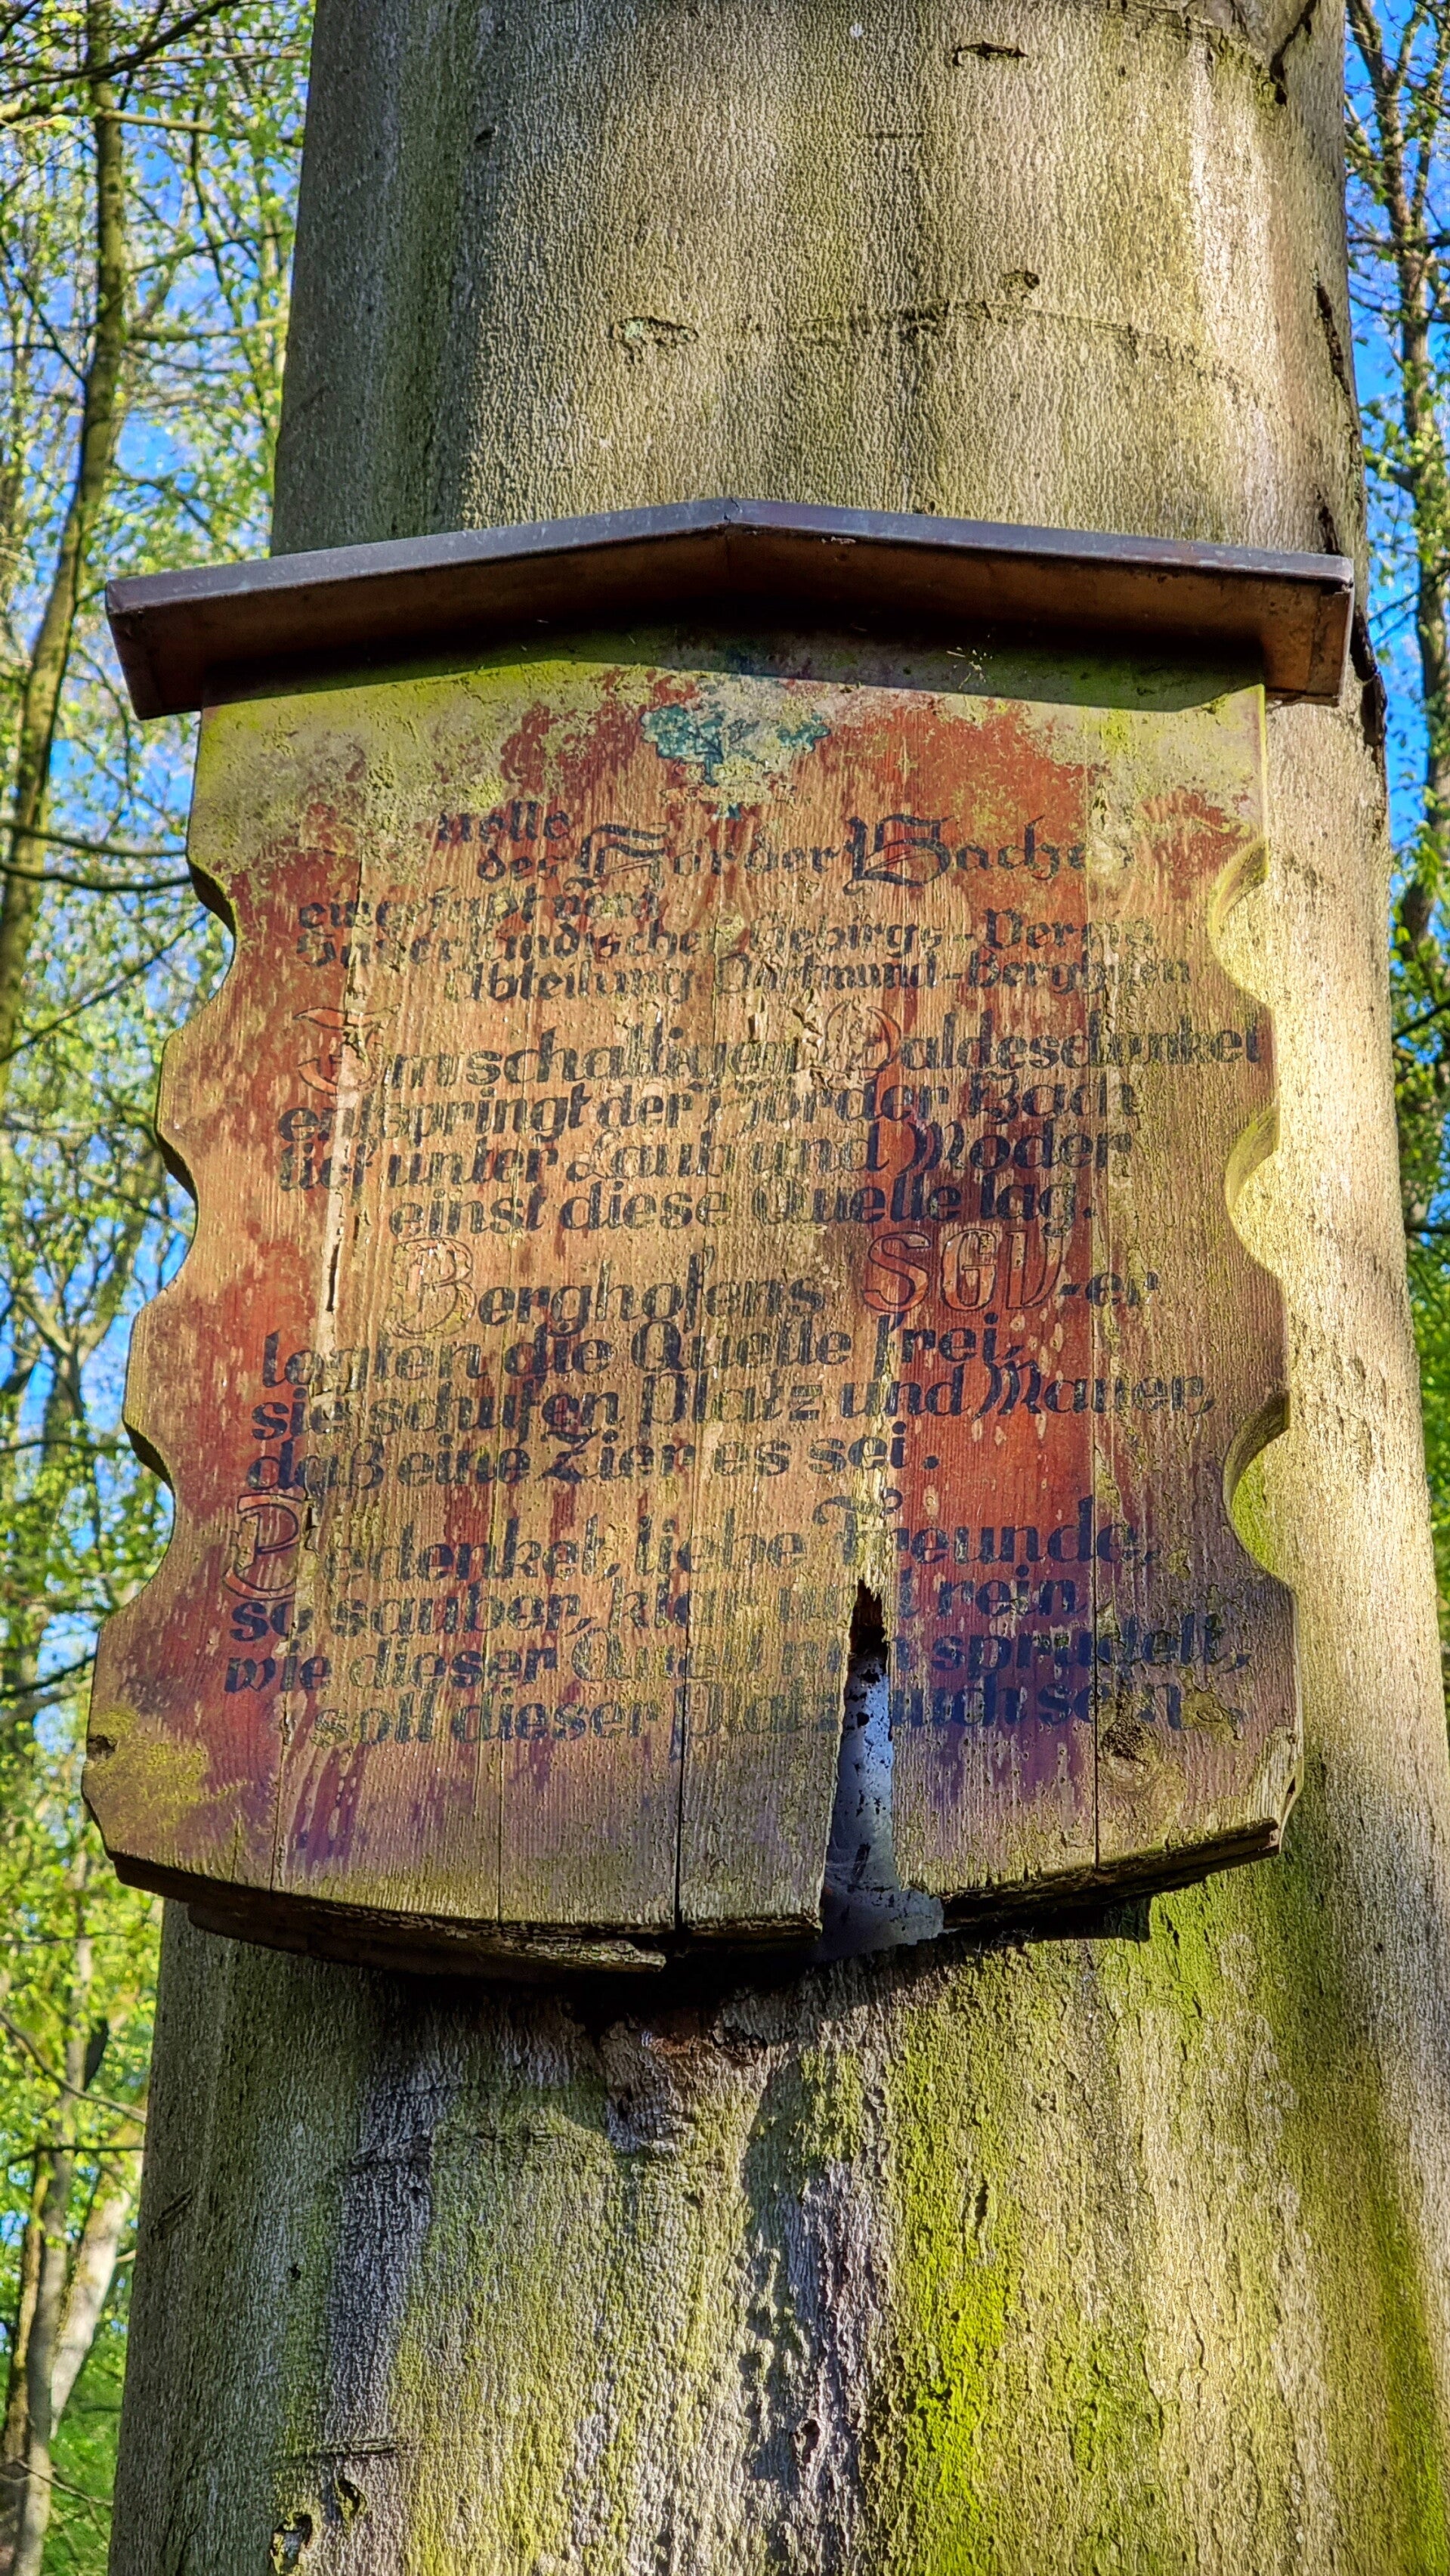 uelle
des Hörder Baches
eingefaßt vom
Sauerländischen Gebirgs-Verein
Abteilung Dortmund-Berghofen
Im schattigen Waldesdunkel
entspringt der Hörder Bach
tief unter Laub und Moder
einst diese Quelle lag.
Berghofens SGV-er
legten die Quelle frei,
sie schufen Platz und Mauer,
daß eine Zier es sei.
Gedenket, liebe Freunde,
so sauber, klar und rein
wie dieser Quell nun sprudelt,
soll dieser Platz auch sein